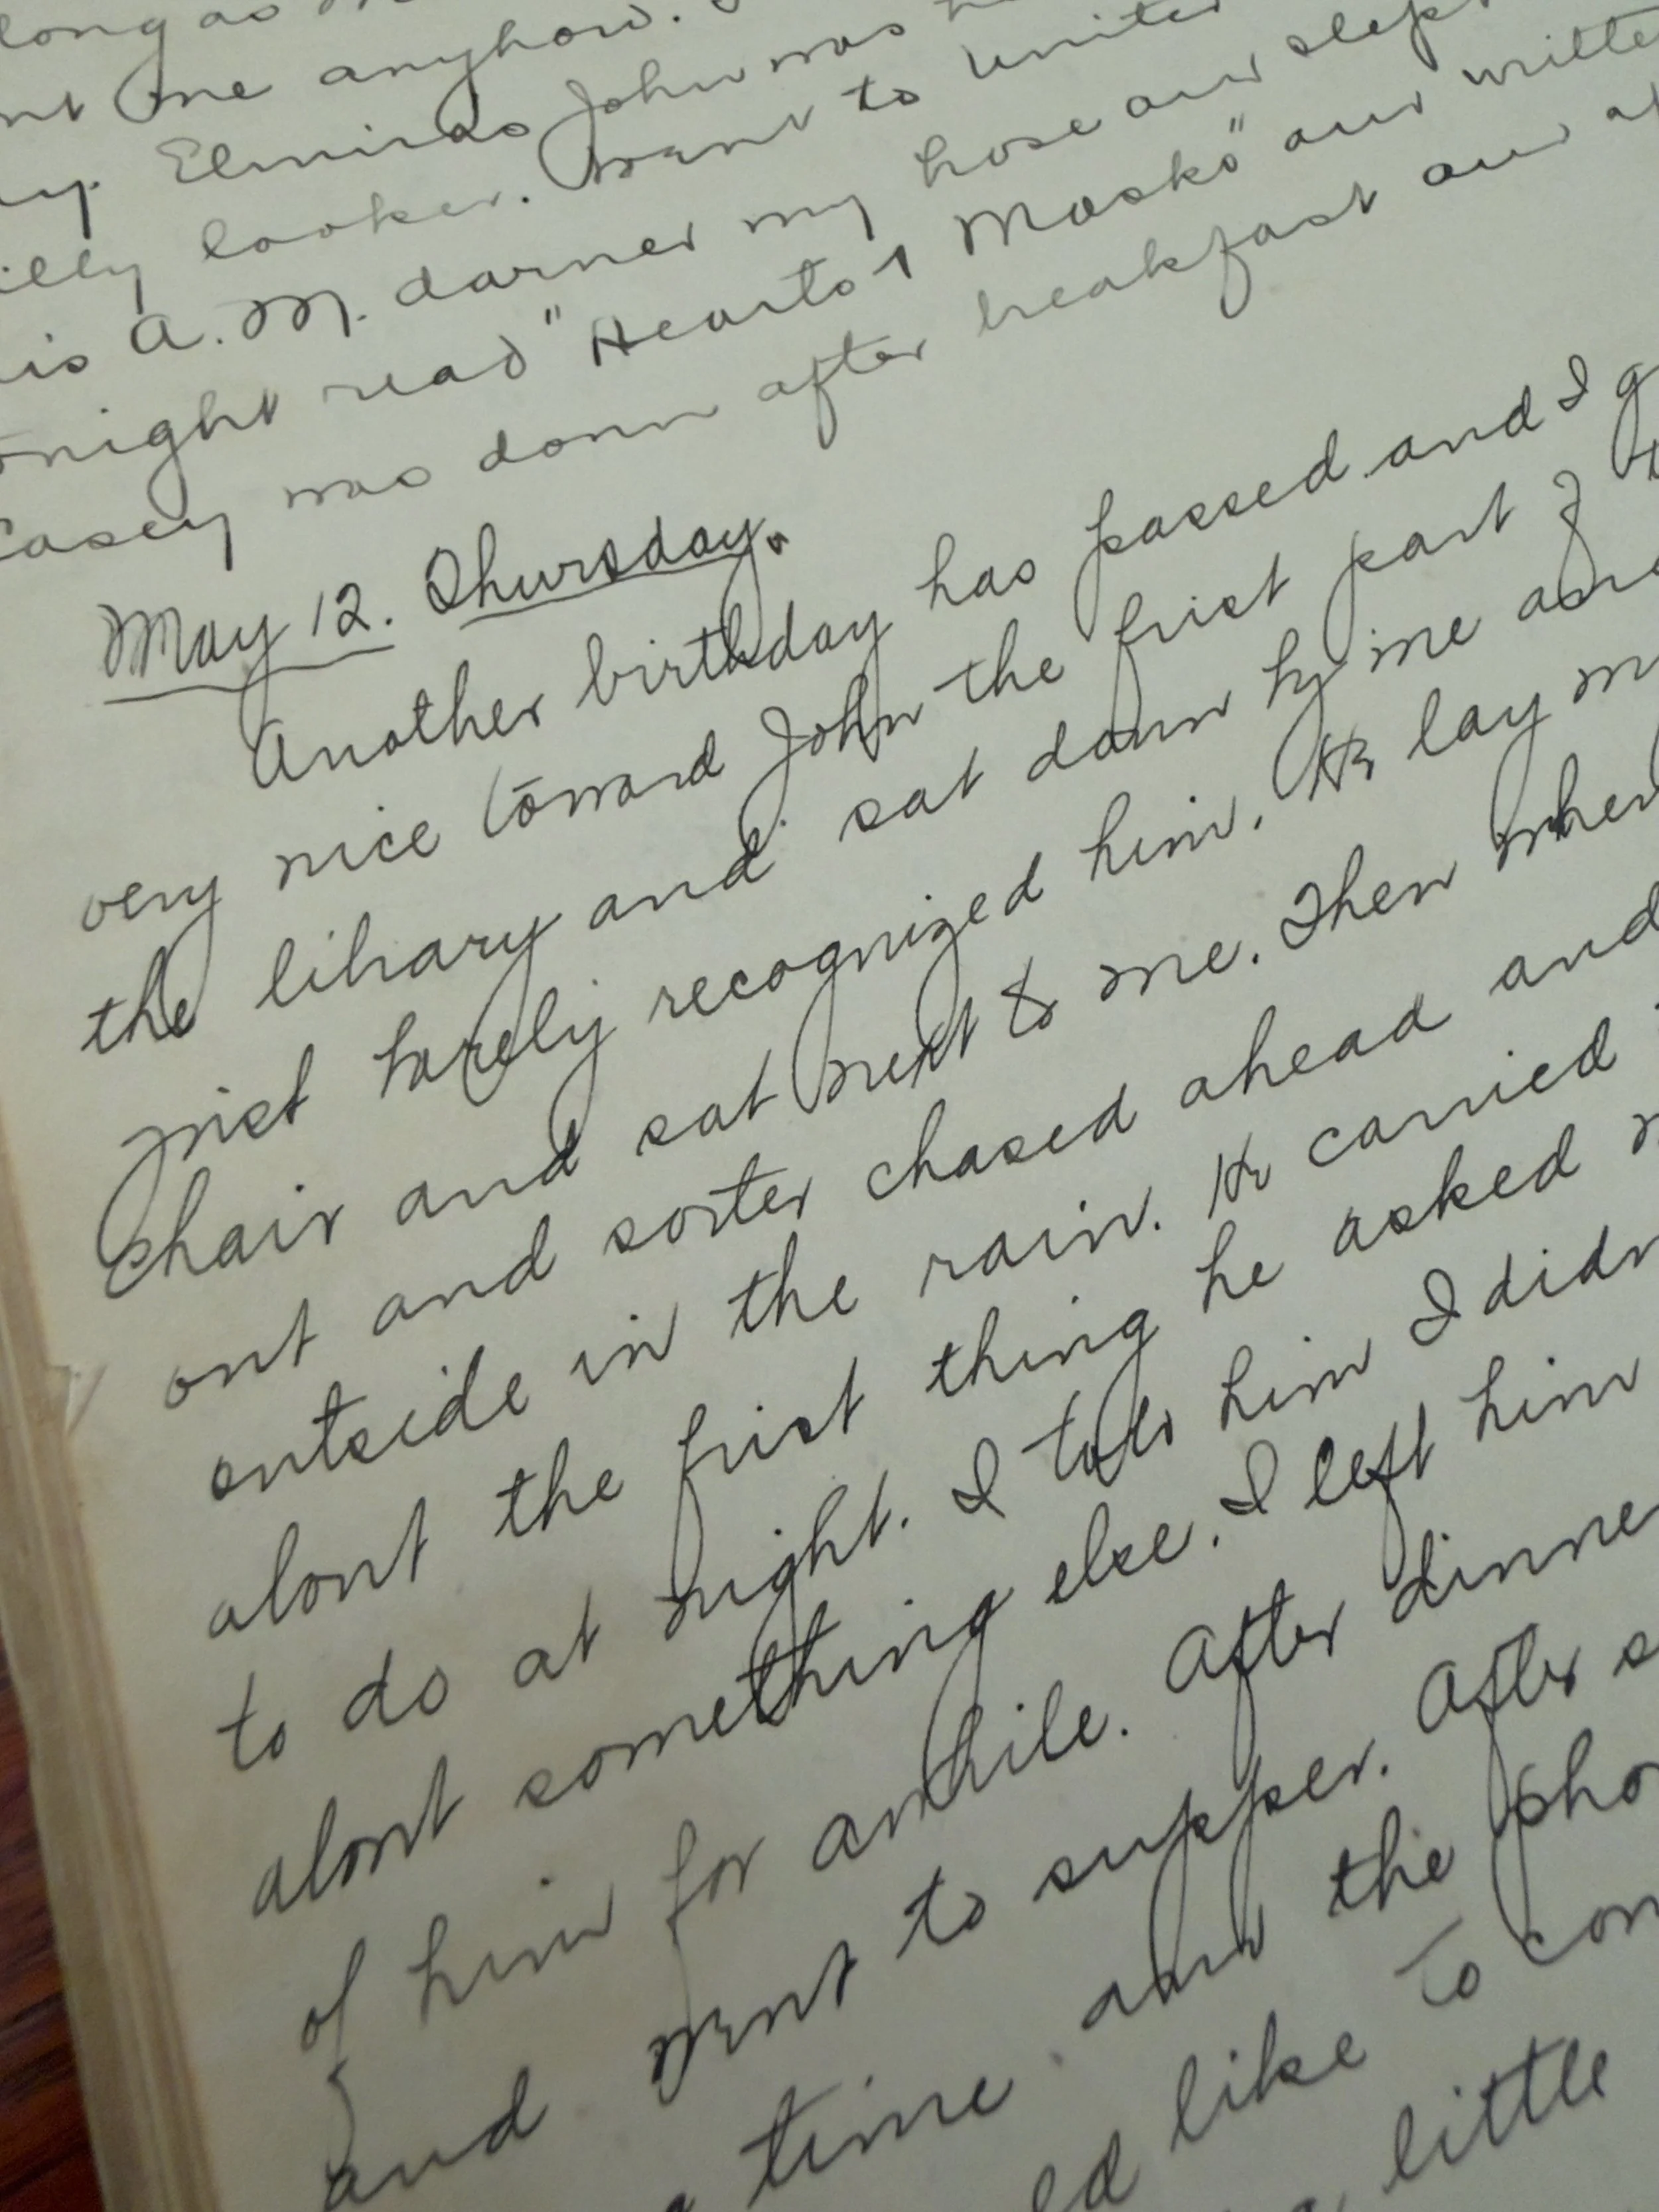 long as
me anyhow.
Elmiras John was
looker. Went to
is A.M. darned my hose and slept
night read "Hearts & Masks" and
Casey was down after breakfast and
May 12. Thursday.
Another birthday has passed and I
very nice toward John the first part of
the library and sat down by me and
just barely recognized him. He lay
chair and sat next to me. Then when
out and sorter chased ahead and
outside in the rain. He carried
about the first thing he asked
to do at night. I told him I didn
about something else. I left him
of him for awhile. After dinner
and went to supper. After s
time and the pho
like to
little